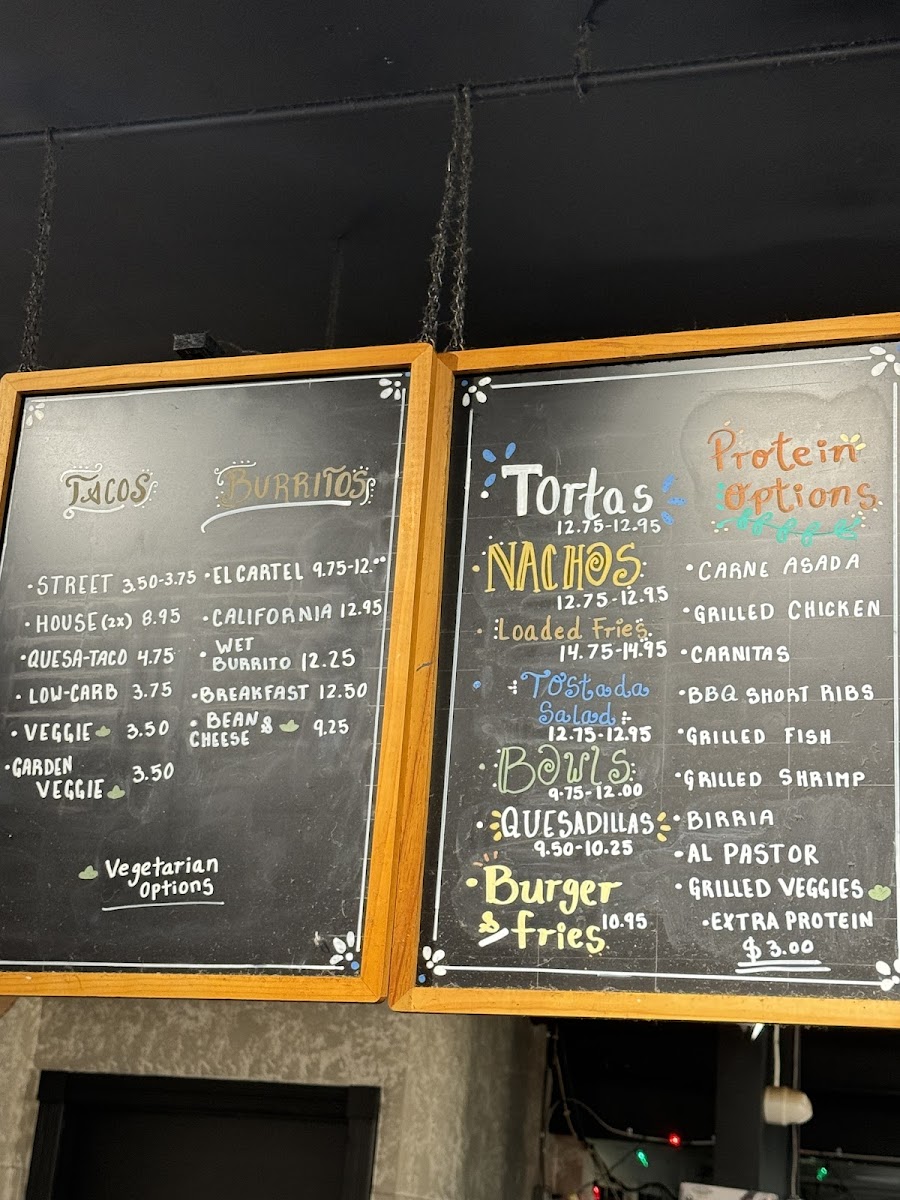 TACOS
• STREET 3.50-3.75
• HOUSE (2x) 8.95
• QUESA-TACO 4.75
• LOW-CARB 3.75
• VEGGIE 3.50
• GARDEN
VEGGIE 3.50
BURRITOS
• EL CARTEL 9.75-12.00
• CALIFORNIA 12.95
• WET
BURRITO 12.25
• BREAKFAST 12.50
• BEAN &
CHEESE 9.25
Vegetarian
options
Tortas
12.75-12.95
NACHOS
12.75-12.95
Loaded Fries
14.75-14.95
Tostada
Salad
12.75-12.95
Bowls
9.75-12.00
• QUESADILLAS
9.50-10.25
• Burger
& fries 10.95
Protein
Options
• CARNE ASADA
• GRILLED CHICKEN
• CARNITAS
• BBQ SHORT RIBS
• GRILLED FISH
• GRILLED SHRIMP
• BIRRIA
• AL PASTOR
• GRILLED VEGGIES
• EXTRA PROTEIN
$3.00